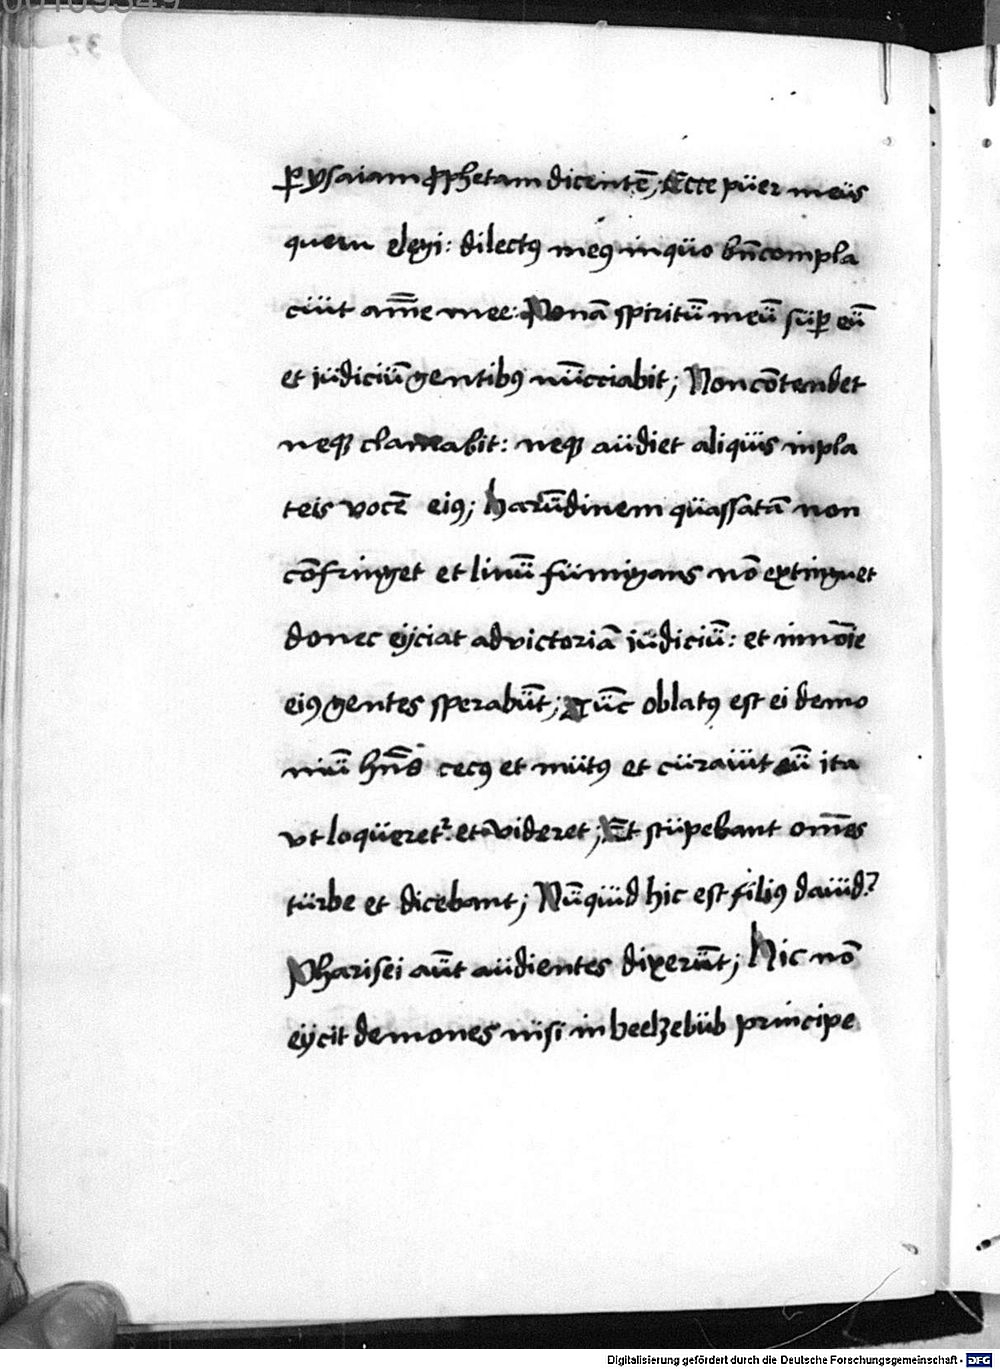 ꝑ ysaiam ꝓphetam dicentē; Ecce püer meüs
quem elegi: dilectꝰ meꝰ in qüo bn̄ compla
ciüt am̄e mee: Ponā spiritū meū süꝑ eū
et jüdiciū gentibꝰ nūcciabit; Non cōtendet
neqꝫ clamabit: neqꝫ aüdiet aliqüis in pla
teis vocē eiꝰ; harūdinem qüassatā non
cōfringet et linū fümigans nō extinguet
donec eyciat ad victoriā jüdiciū: et in noīe
eiꝰ gentes sperabūt; Tūc oblatꝰ est ei demo
niū hn̄s cecꝰ et mütꝰ et cüraüit eū ita
vt loqüeretᷣ et videret; Et stüpebant om̄es
türbe et dicebant; Nūqüid hic est filiꝰ daüid?
Pharisei aūt aüdientes dixerūt; Hic nō
eycit demones nisi in beelzebüb principe
Digitalisierung gefördert durch die Deutsche Forschungsgemeinschaft - DFG